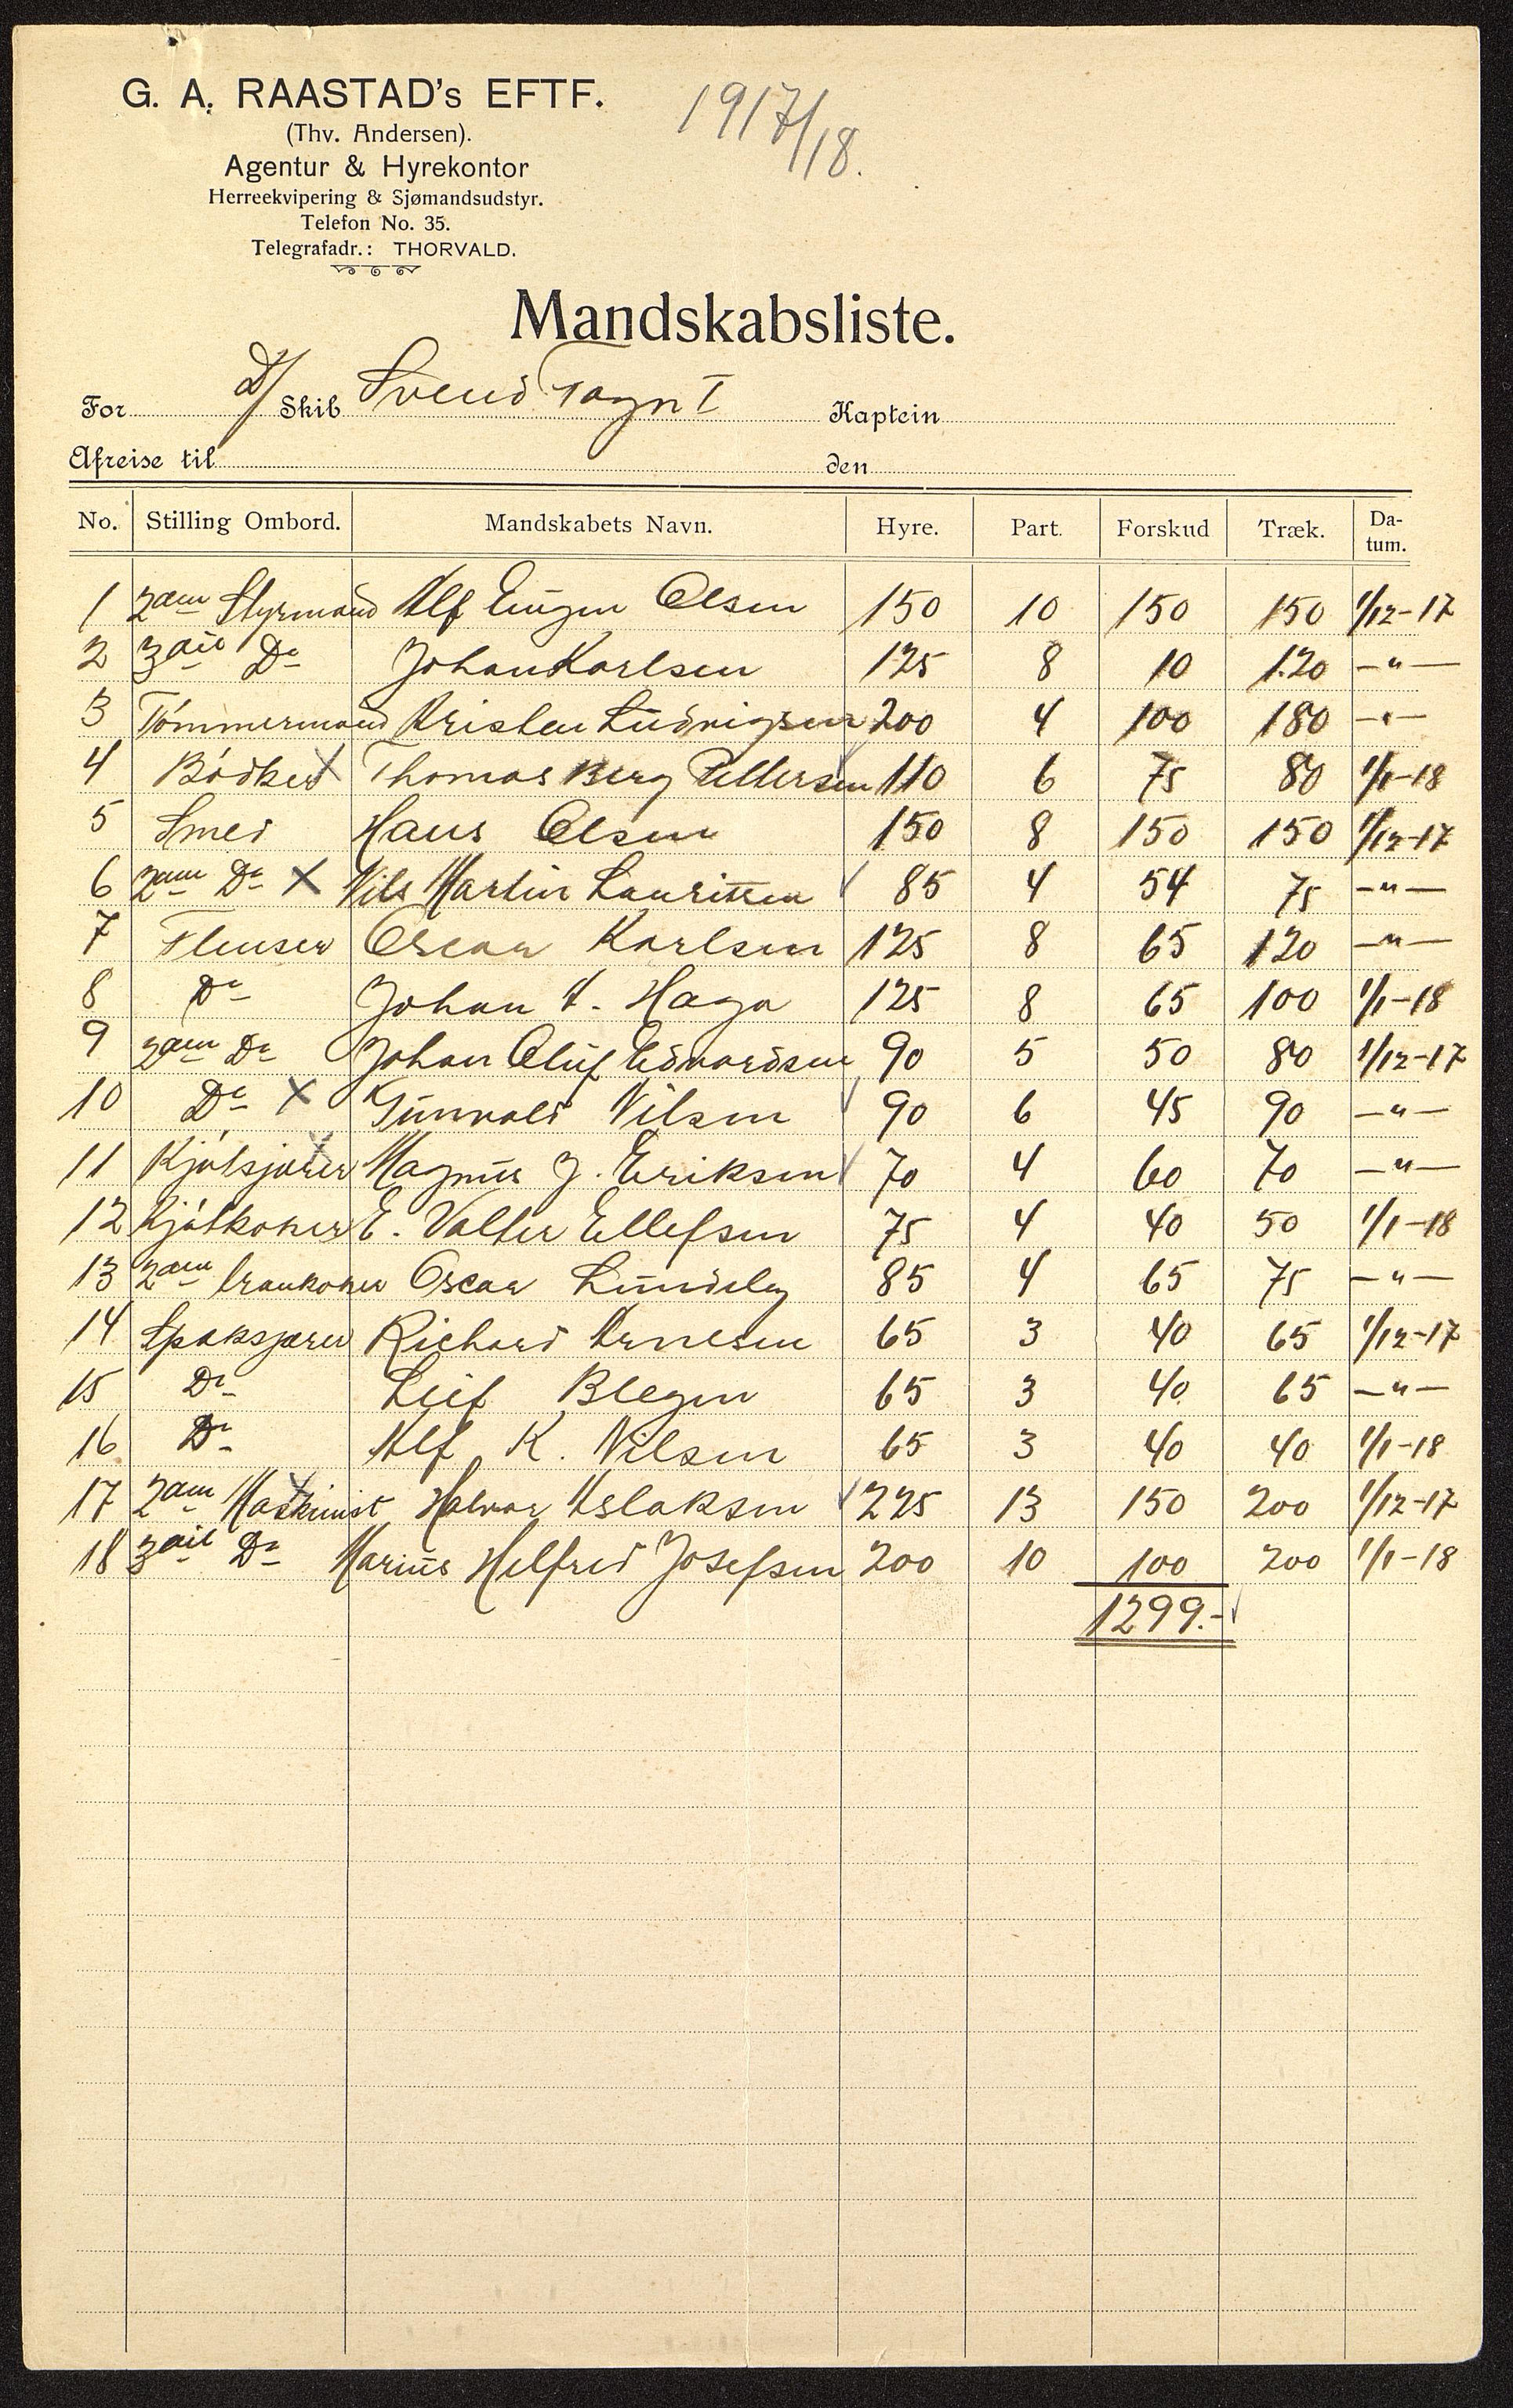 G. A. RAASTAD's EFTF.
(Thv. Andersen).
Agentur & Hyrekontor
Herreekvipering & Sjømandsudstyr.
Telefon No. 35.
Telegrafadr.: THORVALD.
1917/18.
Mandskabsliste.
For D/ Skib Svend Foyn I Kaptein
Afreise til den
No. Stilling Ombord. Mandskabets Navn. Hyre. Part. Forskud Træk. Da-tum.
1 2den Styrmand Alf Eugen Olsen 150 10 150 150 1/12-17
2 3die Do Johan Karlsen 125 8 10 120 -"-
3 Tømmermand Kristen Ludvigsen 200 4 100 180 -"-
4 Bødker X Thomas Berg Pettersen 110 6 75 80 1/1-18
5 Smed Hans Olsen 150 8 150 150 1/12-17
6 2den Do X Nils Martin Lauritsen √ 85 4 54 75 -"-
7 Flenser Oscar Karlsen 125 8 65 120 -"-
8 Do Johan A. Haga 125 8 65 100 1/1-18
9 2den Do Johan Oluf Edvardsen 90 5 50 80 1/12-17
10 Do X Gunvald Nilsen √ 90 6 45 90 -"-
11 Kjøtsjærer X Magnus J. Eriksen √ 70 4 60 70 -"-
12 Kjøtkoker E. Valter Ellefsen 75 4 40 50 1/1-18
13 2den trankoker Oscar Lundeby 85 4 65 75 -"-
14 Spæksjærer Richard Arnesen 65 3 40 65 1/12-17
15 Do Leif Blegen 65 3 40 65 -"-
16 Do Alf K. Nilsen 65 3 40 40 1/1-18
17 2den Maskinist X Halvor Aslaksen √ 225 13 150 200 1/12-17
18 3die Do Marius Helfred Josefsen 200 10 100 200 1/1-18
1299.- √